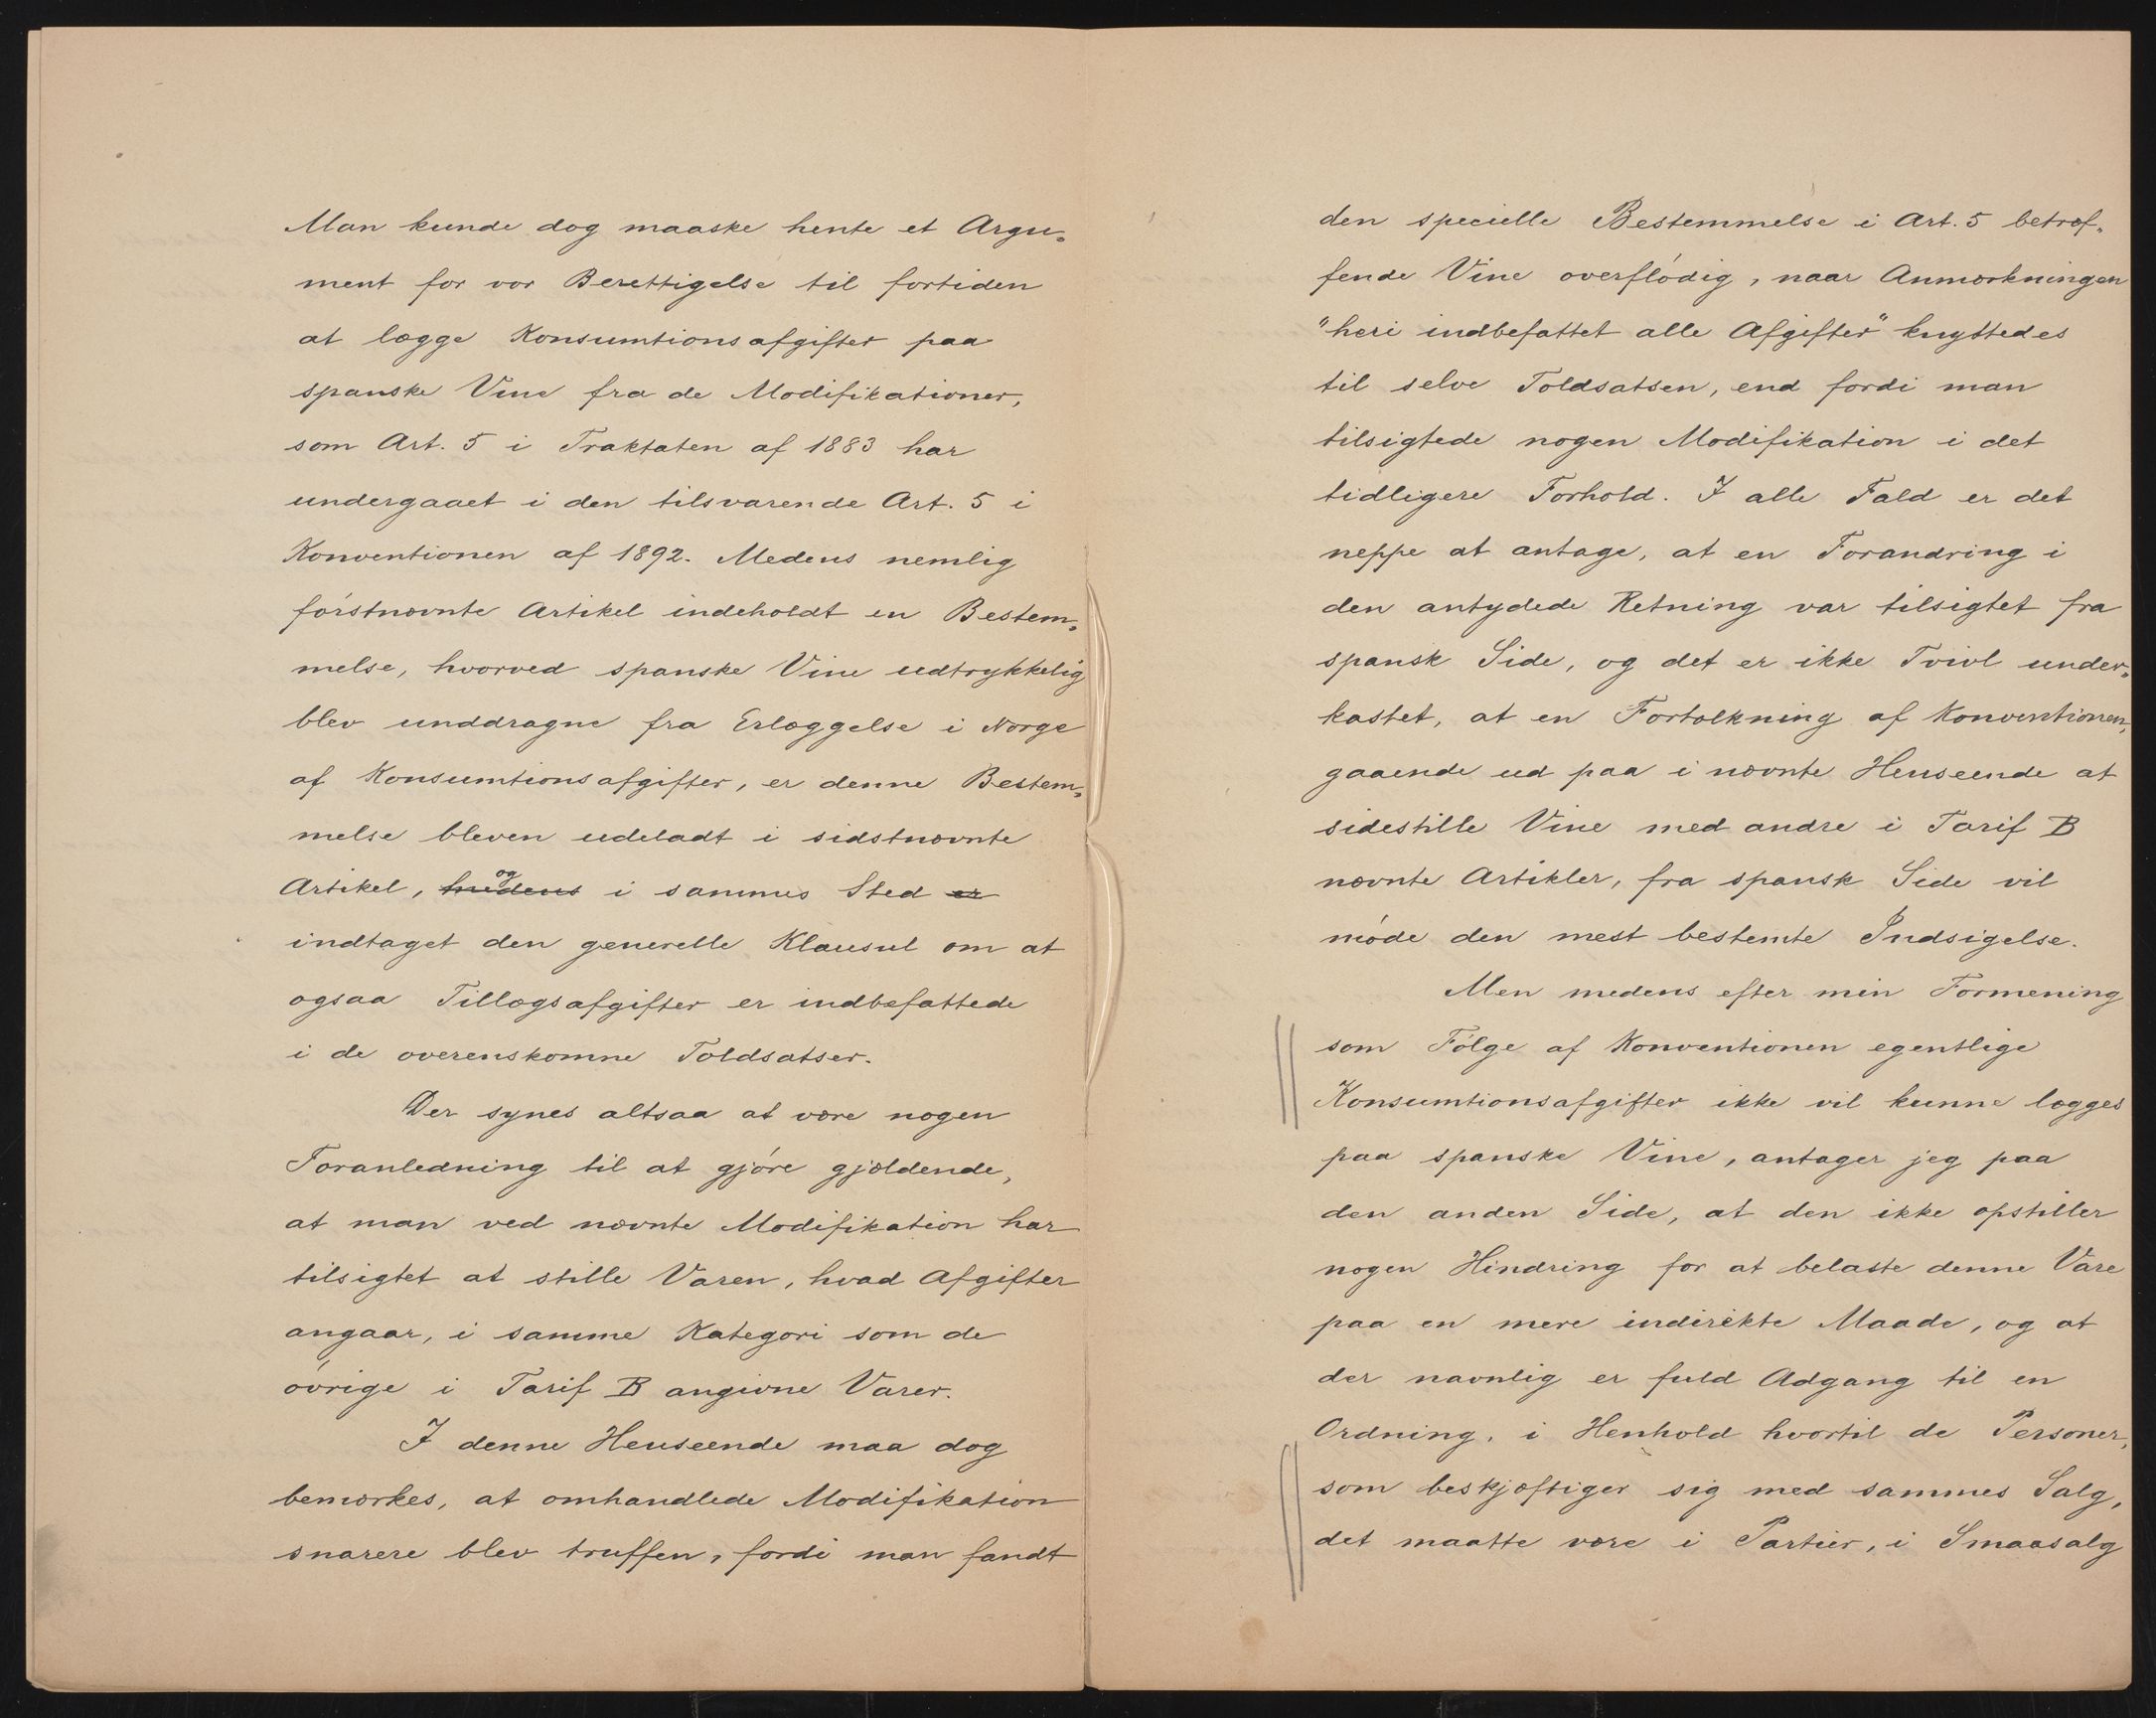 Man kunde dog maaske hente et Argu-
ment for vor Berettigelse til fortiden
at lægge Konsumtionsafgifter paa
spanske Vine fra de Modifikationer,
som Art. 5 i Traktaten af 1883 har
undergaaet i den tilsvarende Art. 5 i
Konventionen af 1892. Medens nemlig
førstnævnte Artikel indeholdt en Bestem-
melse, hvorved spanske Vine udtrykkelig
blev unddragne fra Erlæggelse i Norge
af Konsumtionsafgifter, er denne Bestem-
melse bleven udeladt i sidstnævnte
Artikel, medens og i sammes Sted er
indtaget den generelle Klausul om at
ogsaa Tillægsafgifter er indbefattede
i de overenskomne Toldsatser.
Der synes altsaa at være nogen
Foranledning til at gjøre gjældende,
at man ved nævnte Modifikation har
tilsigtet at stille Varen, hvad Afgifter
angaar, i samme Kategori som de
øvrige i Tarif B angivne Varer.
I denne Henseende maa dog
bemærkes, at omhandlede Modifikation
snarere blev truffen, fordi man fandt
den specielle Bestemmelse i Art. 5 betræf-
fende Vine overflødig, naar Anmærkningen
"heri indbefattet alle Afgifter" knyttedes
til selve Toldsatsen, end fordi man
tilsigtede nogen Modifikation i det
tidligere Forhold. I alle Fald er det
neppe at antage, at en Forandring i
den antydede Retning var tilsigtet fra
spansk Side, og det er ikke Tvivl under-
kastet, at en Fortolkning af Konventionen,
gaaende ud paa i nævnte Henseende at
sidestille Vine med andre i Tarif B
nævnte Artikler, fra spansk Side vil
møde den mest bestemte Indsigelse.
Men medens efter min Formening
som Følge af Konventionen egentlige
Konsumtionsafgifter ikke vil kunne lægges
paa spanske Vine, antager jeg paa
den anden Side, at den ikke opstiller
nogen Hindring for at belaste denne Vare
paa en mere indirekte Maade, og at
der navnlig er fuld Adgang til en
Ordning, i Henhold hvortil de Personer,
som beskjæftiger sig med sammes Salg,
det maatte være i Partier, i Smaasalg